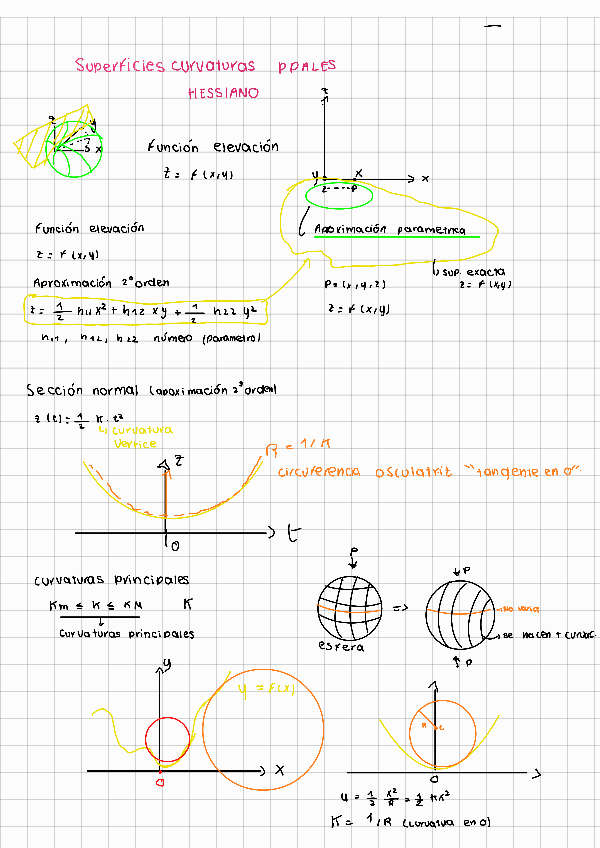 Superficies curvaturas PPALES
HESSIANO
z
y
x
Función elevación
z = f(x,y)
z
y
x
x
z----P
Aproximación parametrica
Función elevación
z = f(x,y)
Aproximación 2º orden
z = 1/2 h11 x² + h12 xy + 1/2 h22 y²
h11, h12, h22 número (parametro)
sup. exacta
z = f(x,y)
P = (x,y,z)
z = f(x,y)
Sección normal (aproximación 2º orden)
z(t) = 1/2 K · t²
curvatura
vertice
R = 1/K
circuferencia osculatriz "tangente en 0".
z
t
0
curvaturas principales
Km ≤ K ≤ KM K
curvaturas principales
P
esfera
=>
P
No varia
P
y
y = f(x)
x
0
R
c
0
y = 1/2 x²/R = 1/2 Kx²
K = 1/R (curvatura en 0)